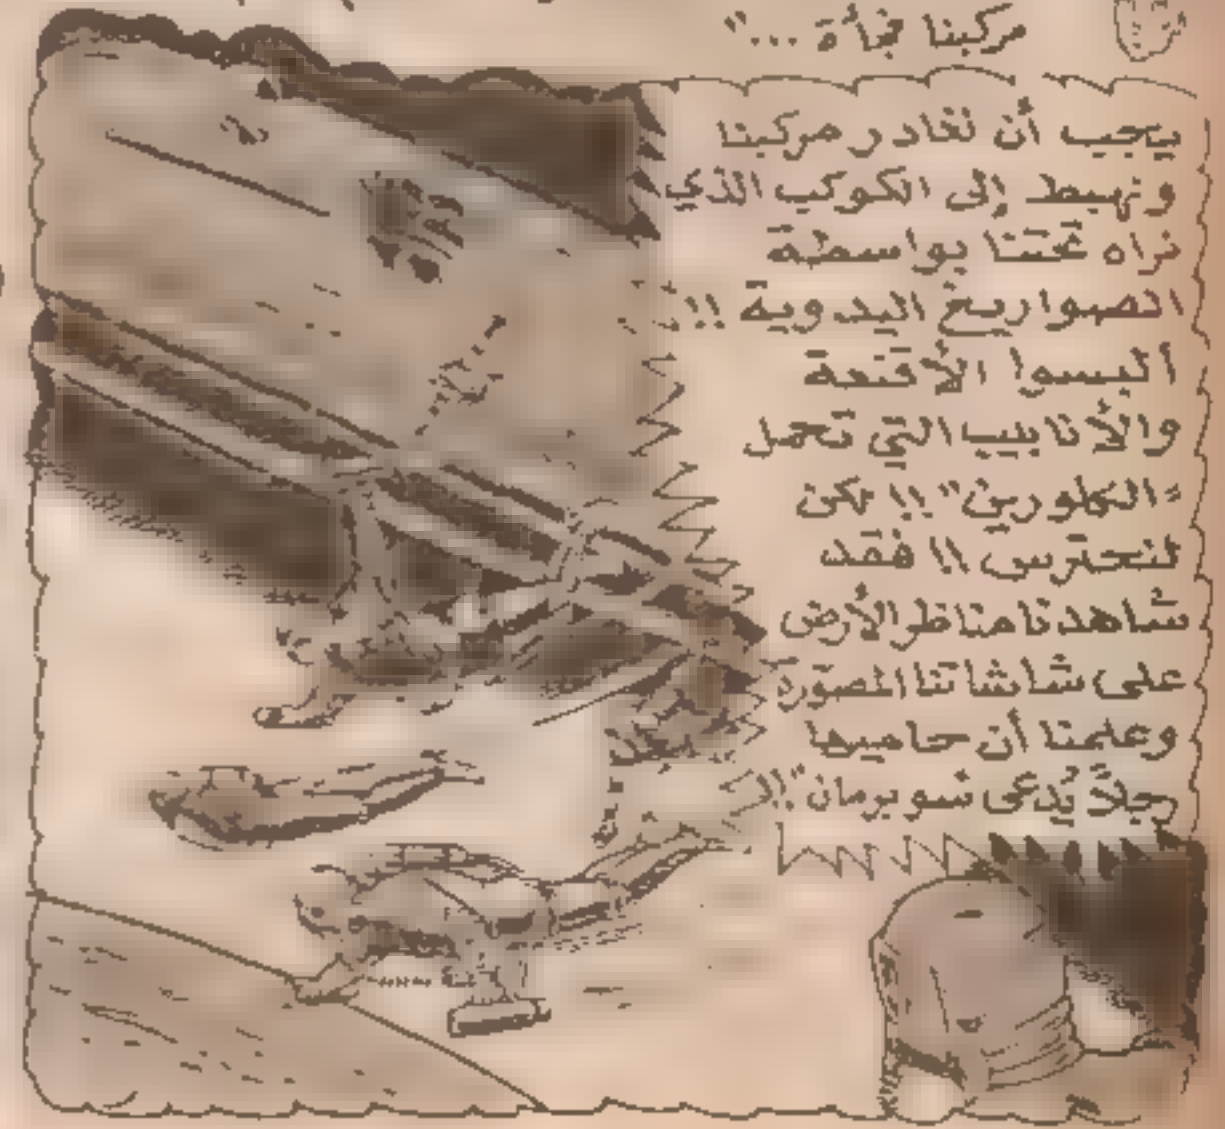 مركبنا فجأة ..."
يجب أن نغادر مركبنا
ونهبط إلى الكوكب الذي
نراه تحتنا بواسطة
الصواريخ اليدوية !!
ألبسوا الأقنعة
والأنابيب التي تحمل
"الكلورين" !! لكن
لنحترس !! فقد
شاهدنا مناظر الأرض
على شاشاتنا المصورة
وعلمنا أن حاميها
رجلاً يُدعى سوبرمان !!